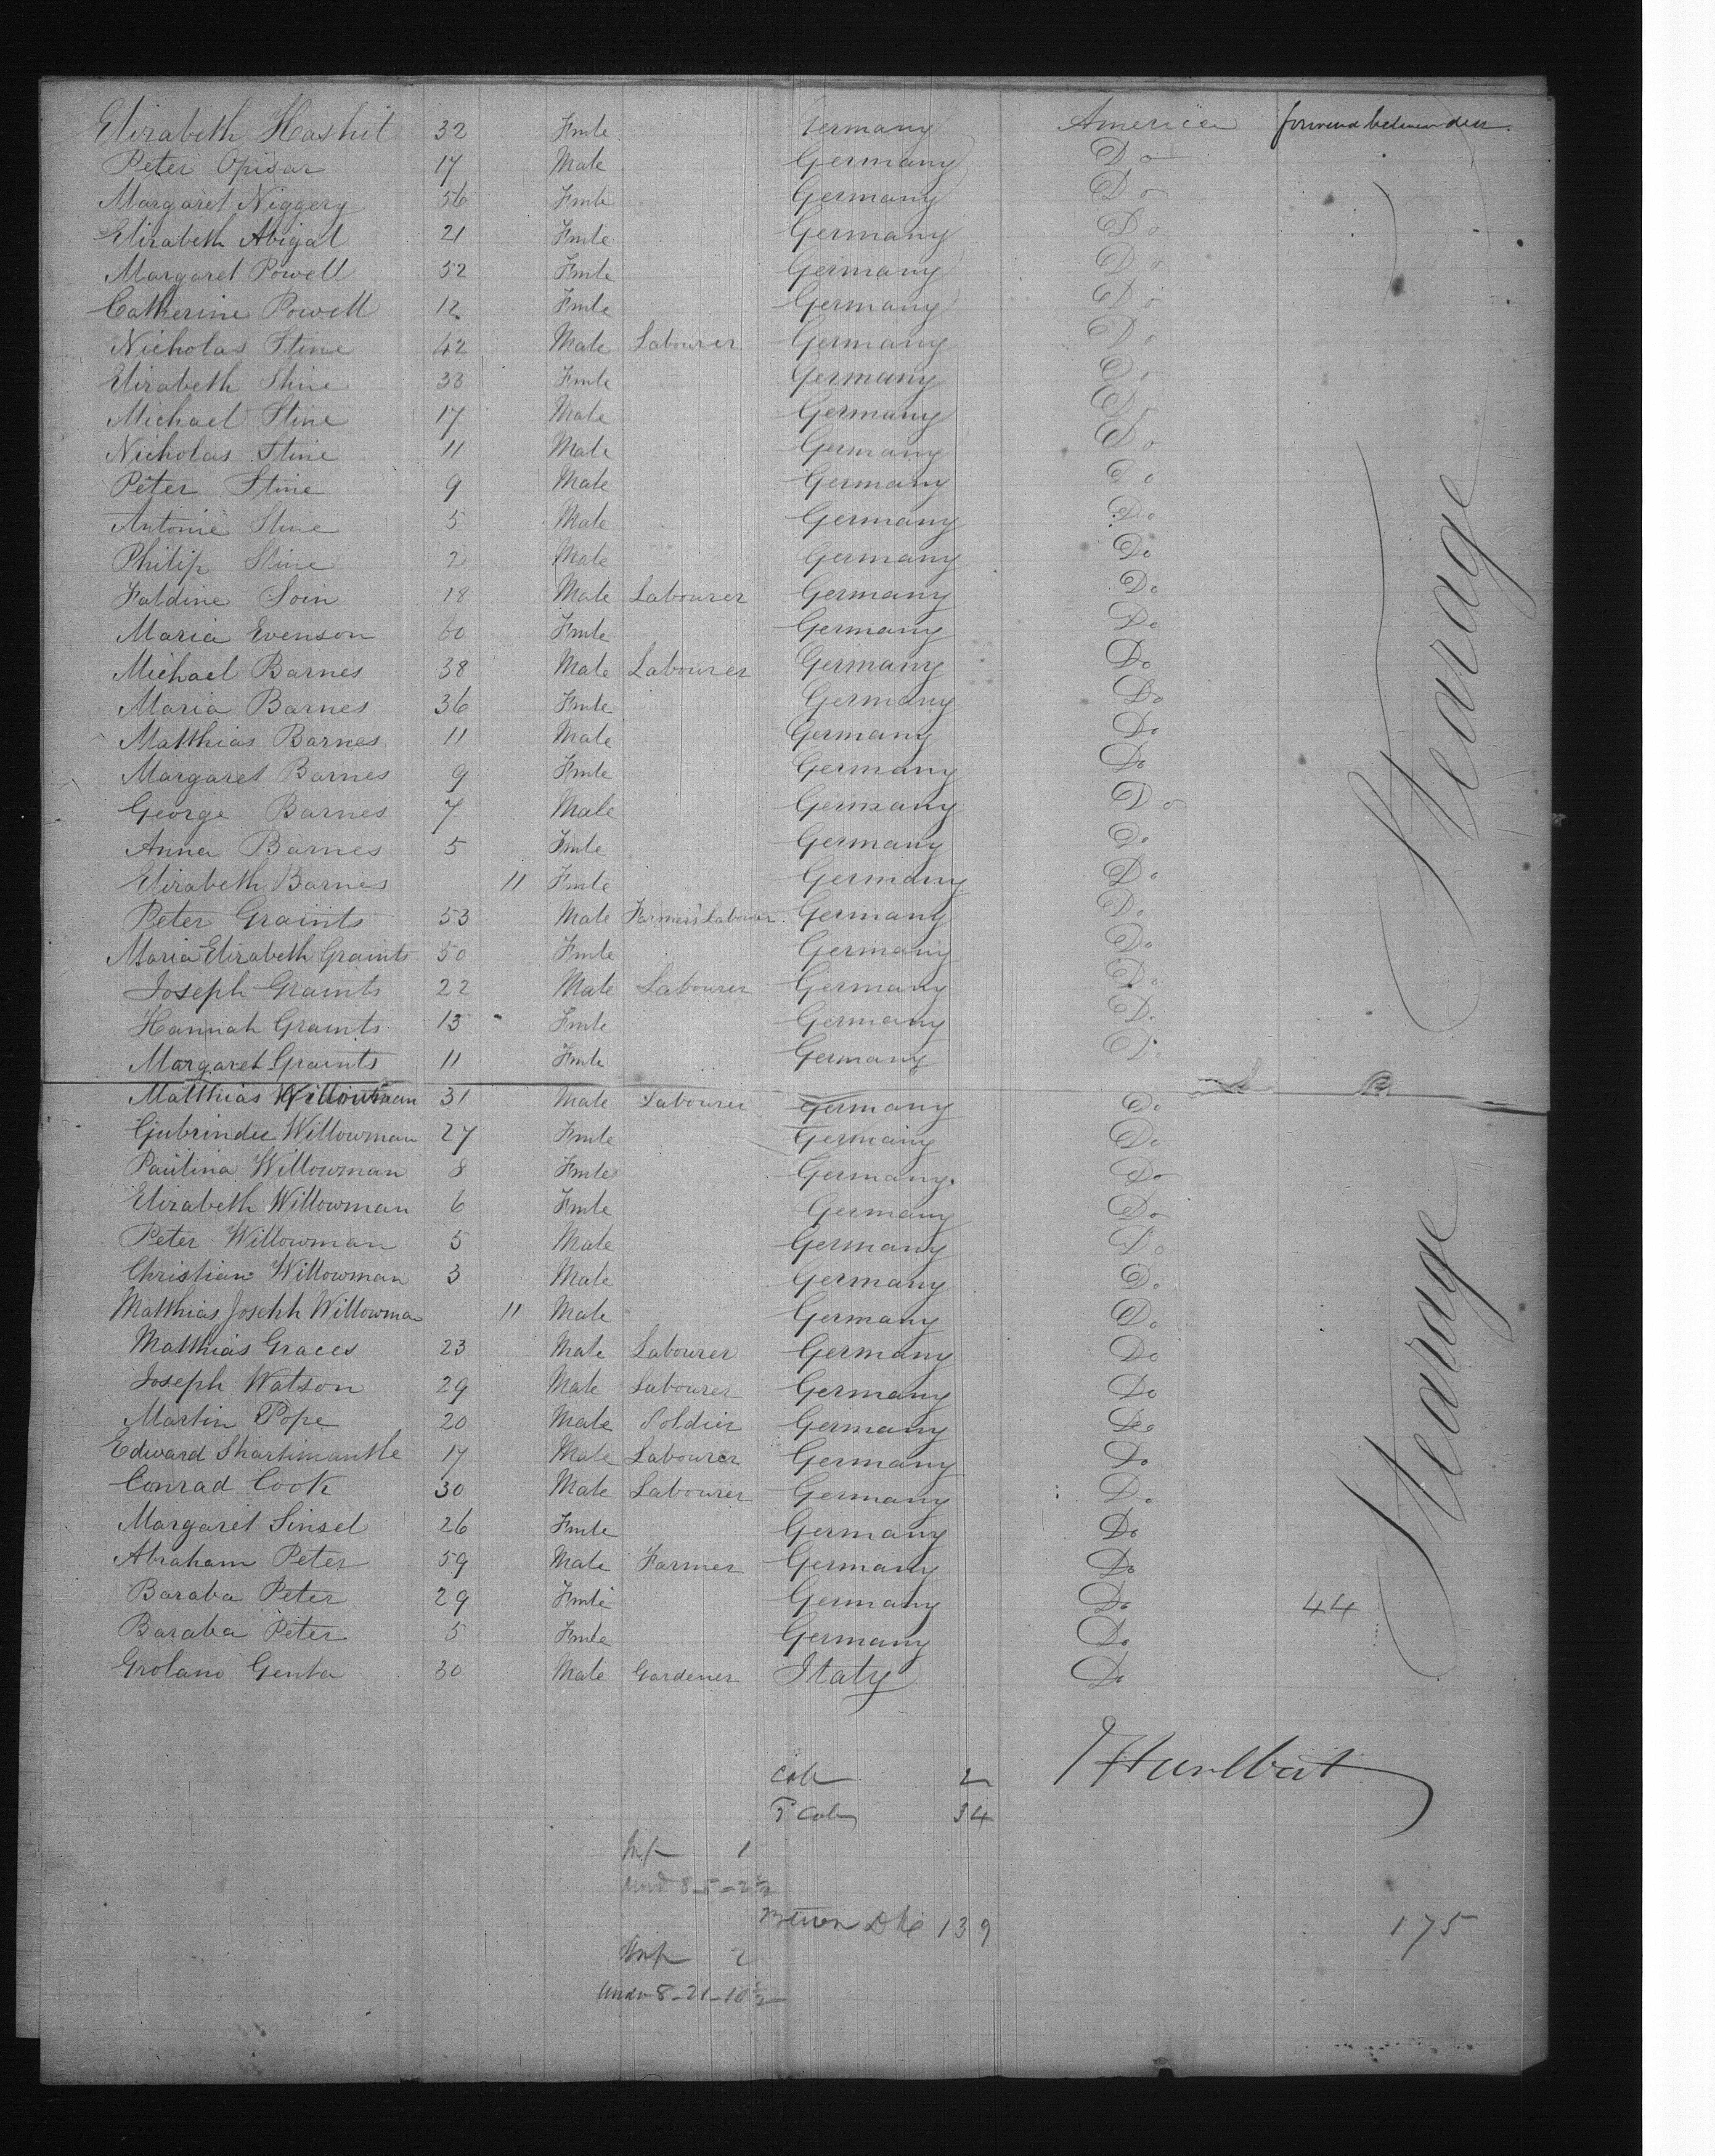 Elizabeth Hashil 32 Fmle Germany America forward between decks
Peter Opisar 17 Male Germany Do
Margaret Niggery 56 Fmle Germany Do
Elizabeth Abigal 21 Fmle Germany Do
Margaret Powell 52 Fmle Germany Do
Catherine Powell 12 Fmle Germany Do
Nicholas Stine 42 Male Labourer Germany Do
Elizabeth Stine 33 Fmle Germany Do
Michael Stine 17 Male Germany Do
Nicholas Stine 11 Male Germany Do
Peter Stine 9 Male Germany Do
Antonie Stine 5 Male Germany Do
Philip Stine 2 Male Germany Do
Faldine Soin 18 Male Labourer Germany Do
Maria Evenson 60 Fmle Germany Do
Michael Barnes 38 Male Labourer Germany Do
Maria Barnes 36 Fmle Germany Do
Matthias Barnes 11 Male Germany Do
Margaret Barnes 9 Fmle Germany Do
George Barnes 7 Male Germany Do
Anna Barnes 5 Fmle Germany Do
Elizabeth Barnes 11 Fmle Germany Do
Peter Graints 53 Male Farmers Labourer Germany Do
Maria Elizabeth Graints 50 Fmle Germany Do
Joseph Graints 22 Male Labourer Germany Do
Hannah Graints 13 Fmle Germany Do
Margaret Graints 11 Fmle Germany Do
Stearage
Matthias Willowman 31 Male Labourer Germany Do
Gubrindie Willowman 27 Fmle Germany Do
Paulina Willowman 8 Fmle Germany Do
Elizabeth Willowman 6 Fmle Germany Do
Peter Willowman 5 Male Germany Do
Christian Willowman 3 Male Germany Do
Matthias Joseph Willowman 11 Male Germany Do
Matthias Graces 23 Male Labourer Germany Do
Joseph Watson 29 Male Labourer Germany Do
Martin Pope 20 Male Soldier Germany Do
Edward Shartimantle 17 Male Labourer Germany Do
Conrad Cook 30 Male Labourer Germany Do
Margaret Sinsel 26 Fmle Germany Do
Abraham Peter 59 Male Farmer Germany Do
Baraba Peter 29 Fmle Germany Do 44
Baraba Peter 5 Fmle Germany Do
Grolano Genta 30 Male Gardener Italy Do
Stearage
Cab 2 Hurlbut
2 Cab 34
Inf 1
Und 8 - 5 - 2 1/2
Btween Dks 139 175
Inf 2
Under 8 - 21 - 10 1/2